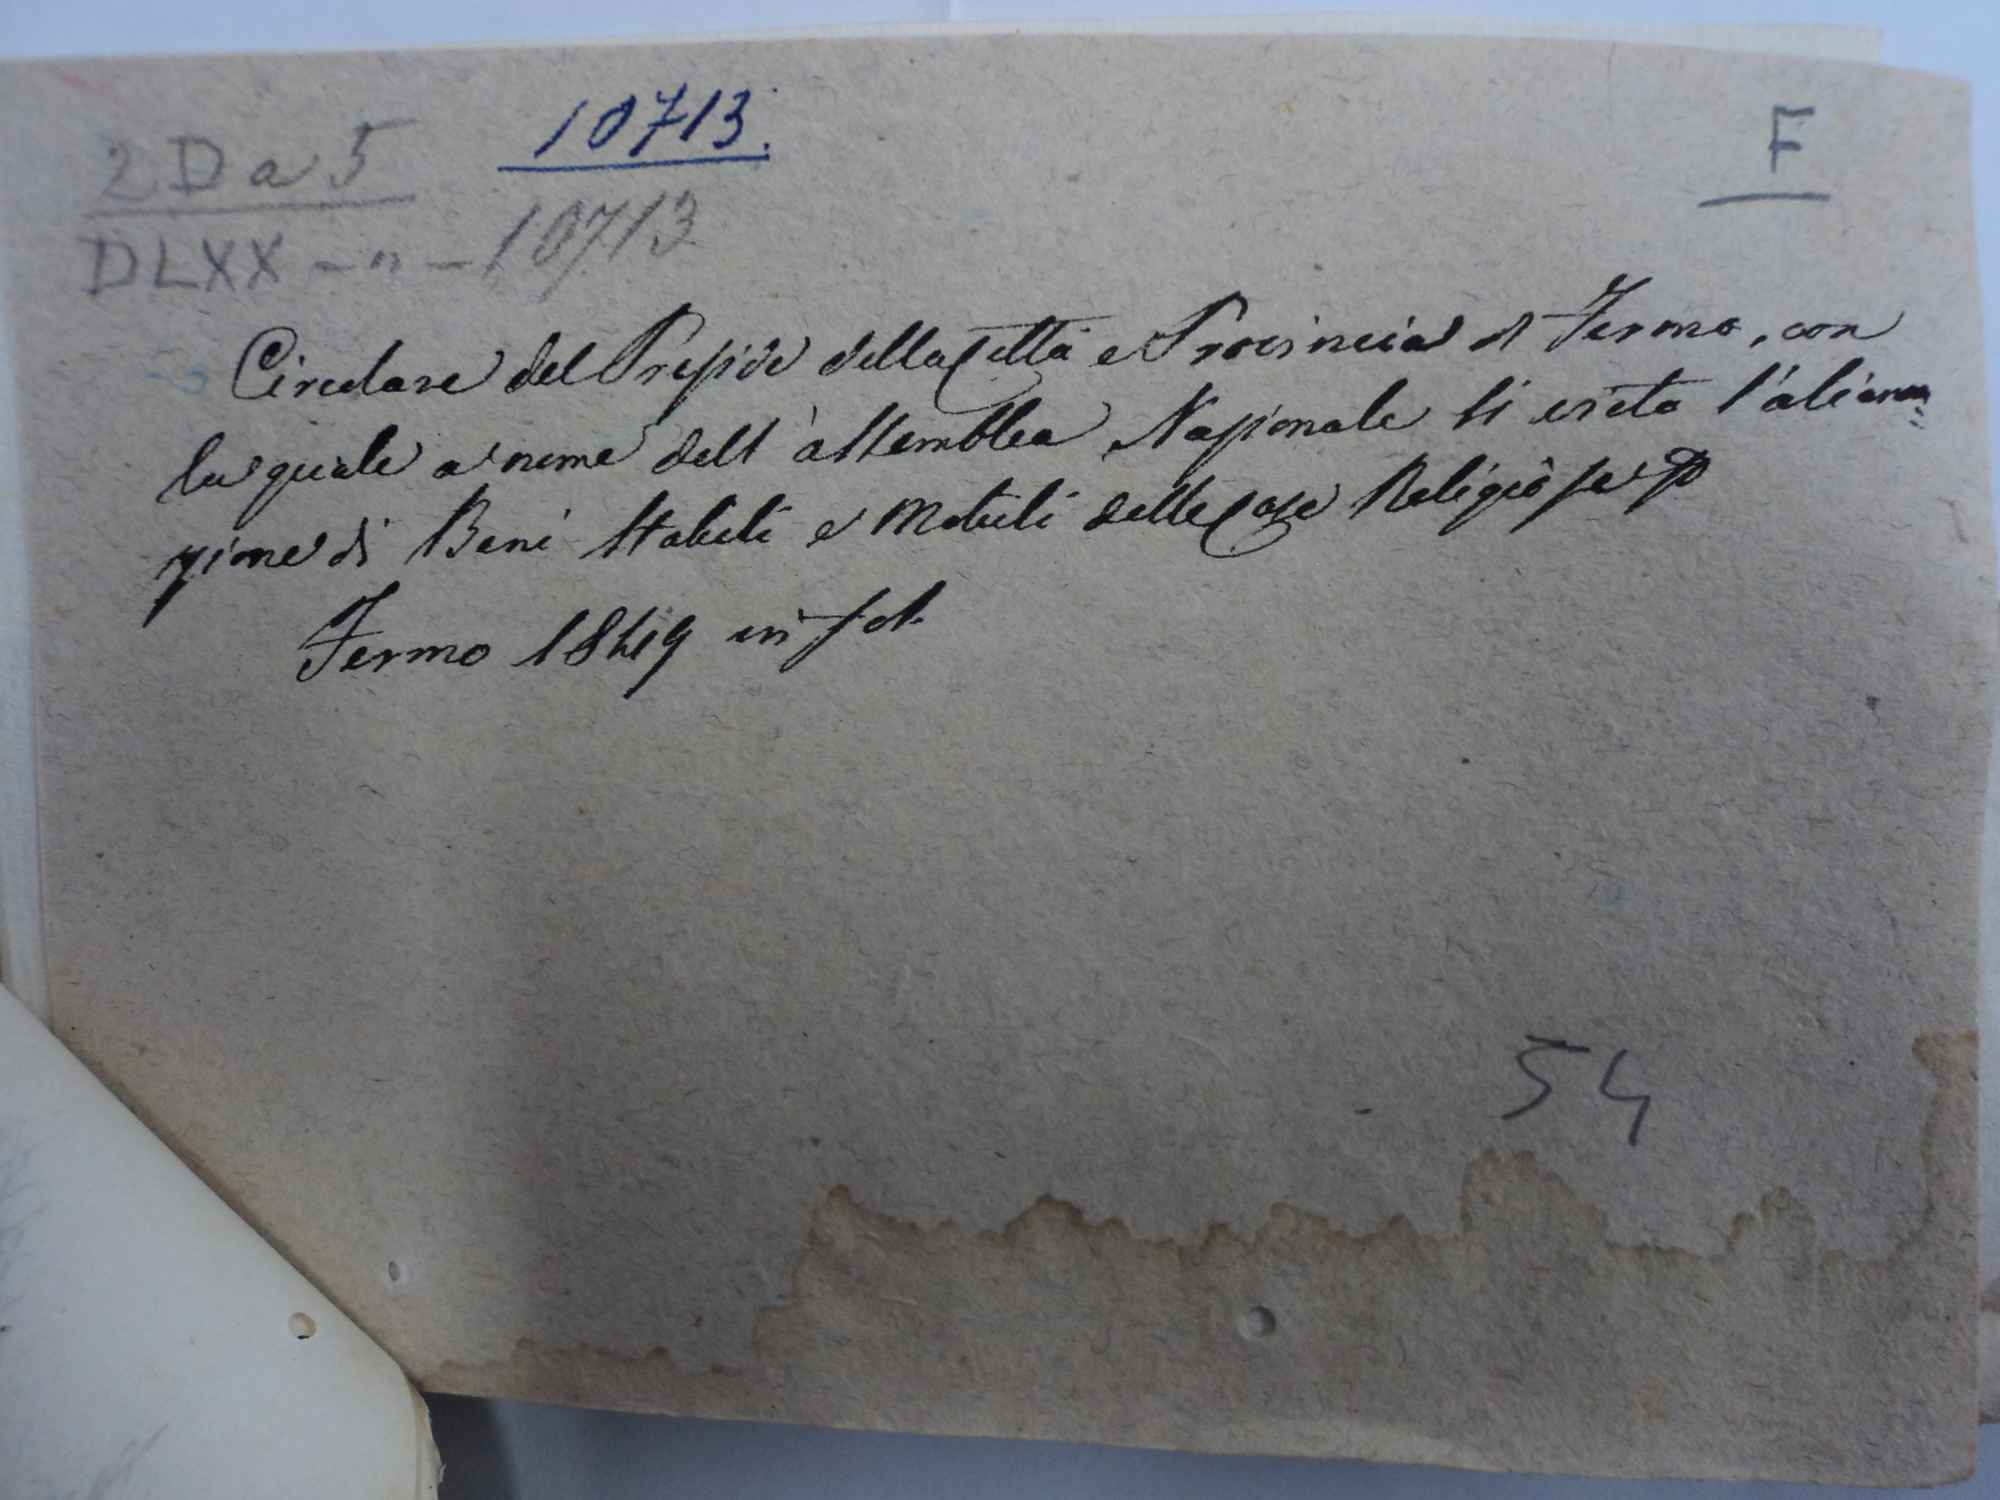 2 D a 5
10713.
F
DLXX - n - 10713
Circolare del Preside della Città e Provincia di Fermo, con
la quale a nome dell'assemblea Nazionale si vieta l'aliena=
zione di Beni Stabili e Mobili delle Case Religiose
Fermo 1849 in fol.
54